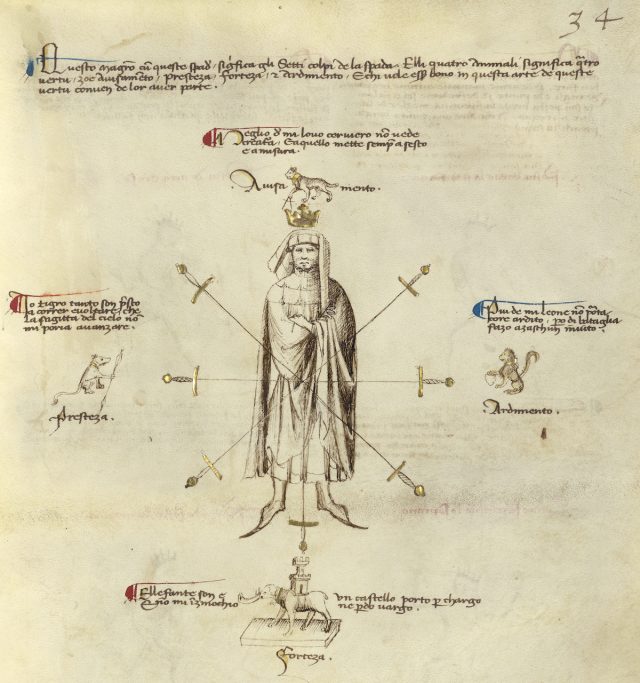 34
Questo magro cu queste spad significa gli Setti colpi de la spada. Elli quatro animali significa qtro
vertu, zoe avisameto, presteza, forteza, & ardimento. E chi vole ess bono in questa arte de queste
vertu conven de lor aver parte.
Meglio d mi lovo cerviero no vede
creata. E aquello mette semp a sesto
e a misura.
Avisa mento.
Io tigro tanto son psto
a correr e voltare, che
la sagitta del cielo no
mi poria avanzare.
Piu de mi leone no porta
core ardito, po di bataglia
fazo a zaschun invito.
Presteza.
Ardimento.
Ellefante son e un castello porto p chargo
E no mi inzinochio ne pdo vargo.
Forteza.